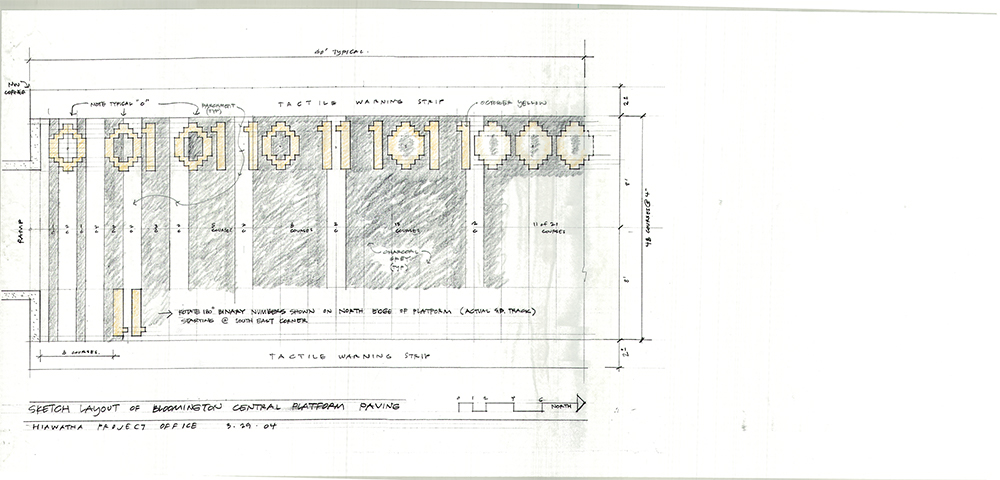 40' TYPICAL.
NW CORNER
NOTE TYPICAL "0"
PARCHMENT (TYP)
TACTILE WARNING STRIP
OCTOBER YELLOW
RAMP
COURSES
COURSES
COURSES
11 of 21 COURSES
48 COURSES @ 4"
CHARCOAL GREY (TYP)
ROTATE 180° BINARY NUMBERS SHOWN ON NORTH EDGE OF PLATFORM (ACTUAL S.B. TRACK)
STARTING @ SOUTH EAST CORNER
COURSES.
TACTILE WARNING STRIP
SKETCH LAYOUT OF BLOOMINGTON CENTRAL PLATFORM PAVING
0 1 2 4 6
NORTH
HIAWATHA PROJECT OFFICE 3.29.04